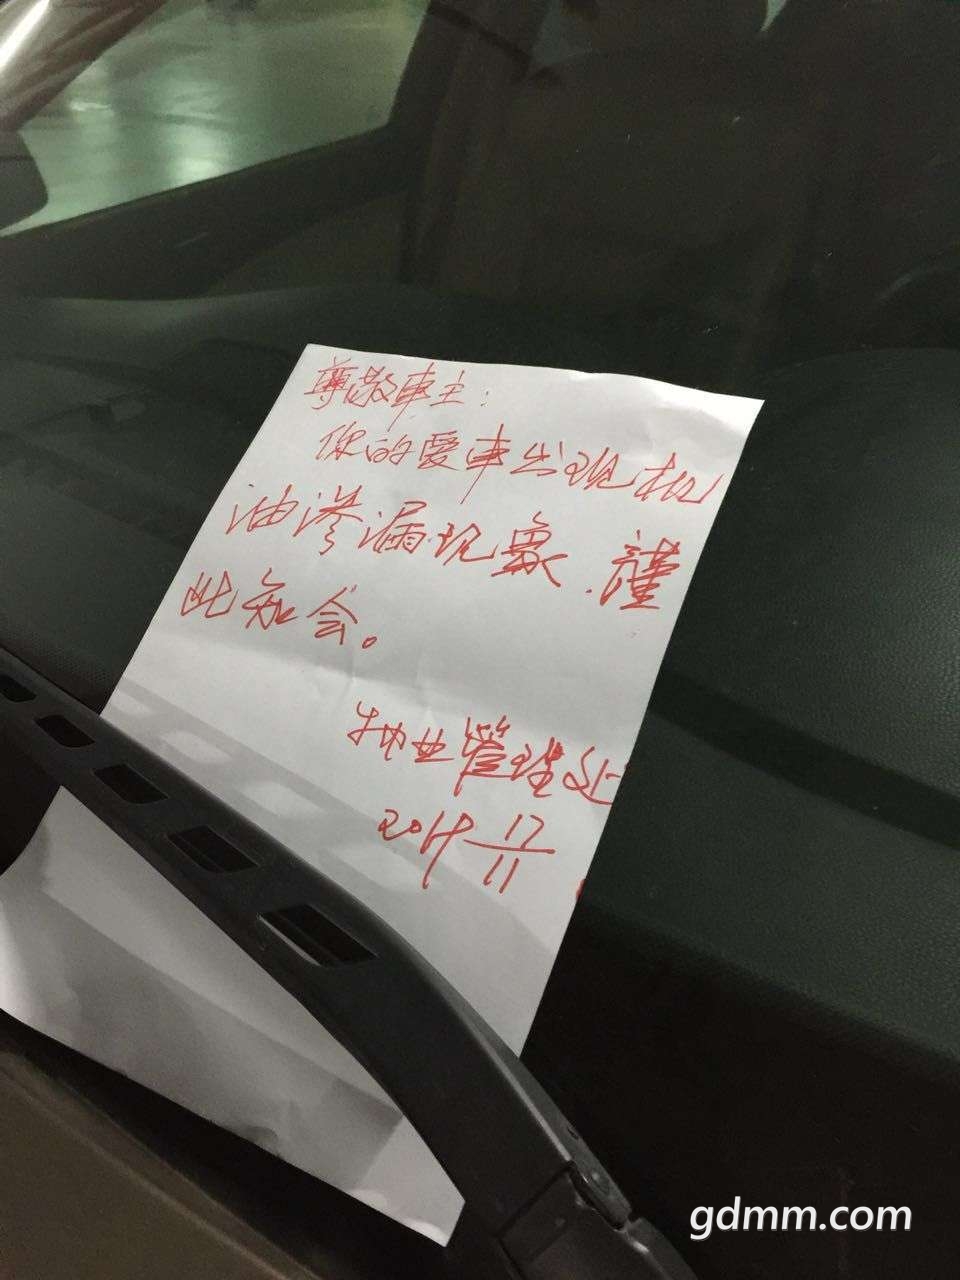 尊敬车主：
你的爱车出现机
油渗漏现象.謹
此知会。
物业管理处
2017 17/11
gdmm.com